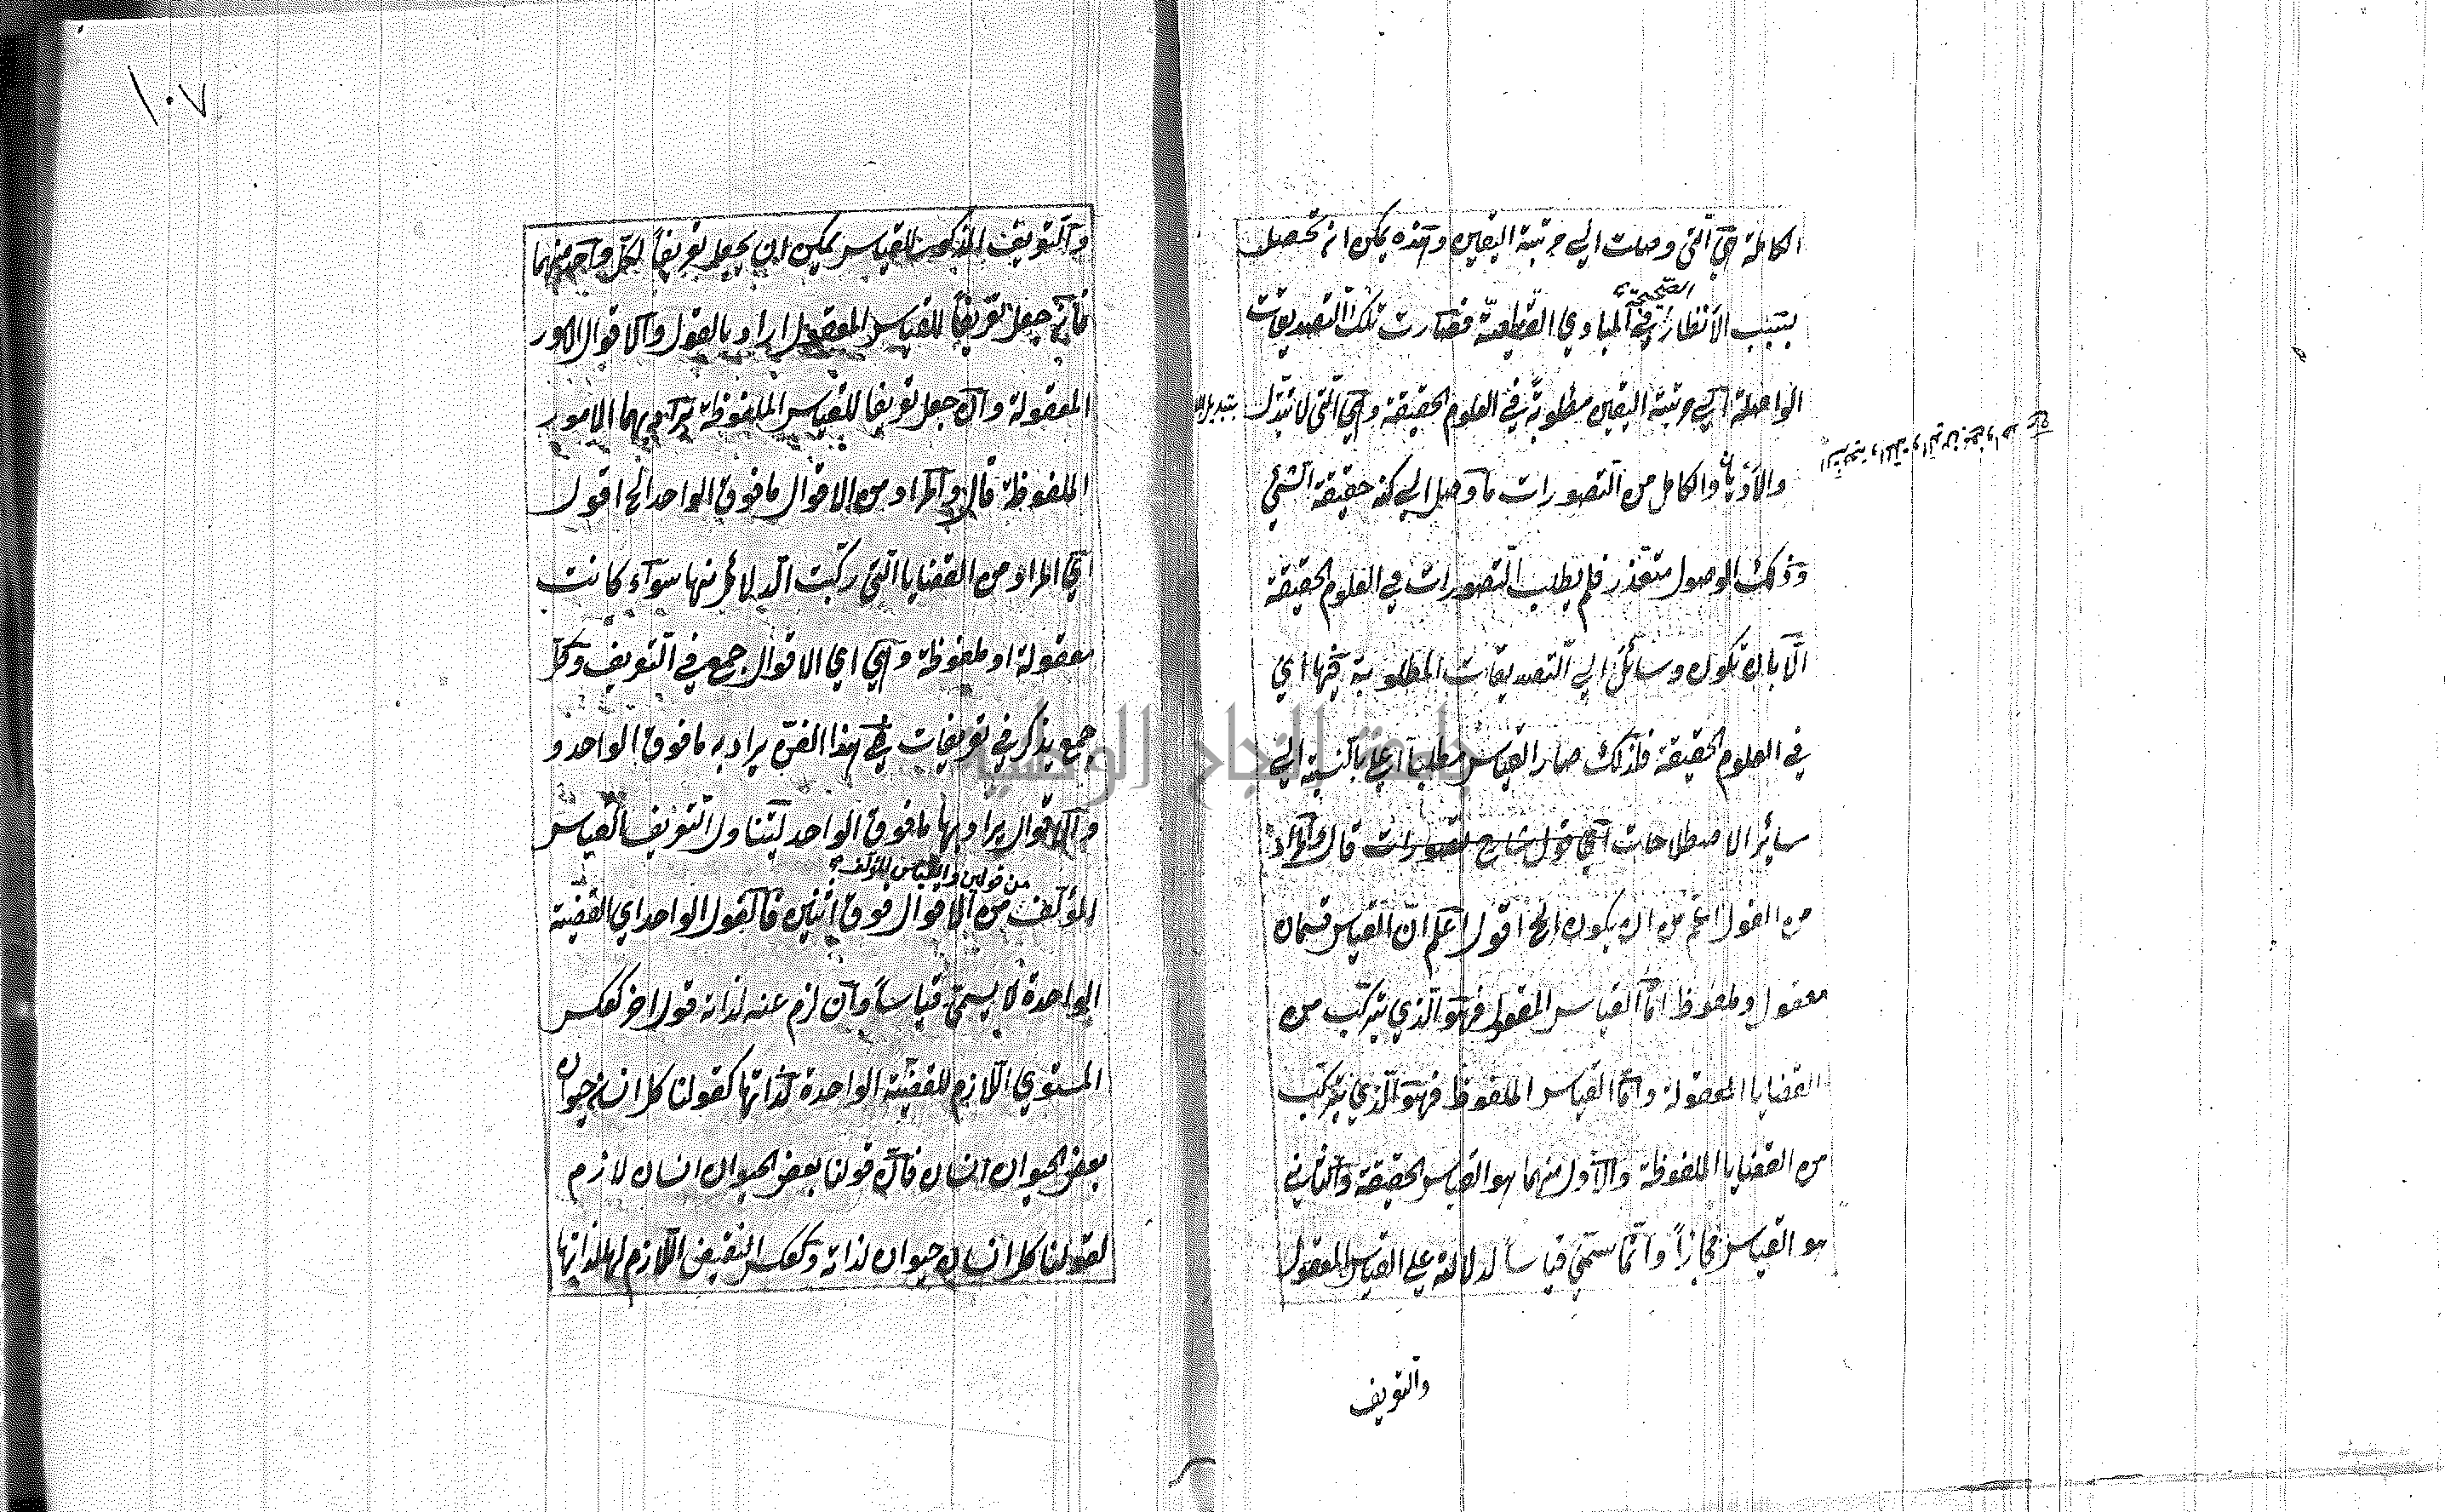 الكاملة هي التي وصلت الي مرتبة اليقين وهذه يمكن ان تحصل
الصحيحة
بسبب الانظار في المبادي القطعية فصارت تلك التصديقات
الواصلة الي مرتبة اليقين مطلوبة في العلوم الحقيقة وهي التي لا تتبدل
والاديان والكامل من التصورات ما وصل الي كنه حقيقة الشئ
وذلك الوصول متعذر فلم يطلب التصورات في العلوم الحقيقة
الا بان تكون وسائل الي التصديقات المطلوبة فيها اي
في العلوم الحقيقة فلذلك صار القياس مطلبا اعلي بالنسبة الي
سائر الاصطلاحات اي قول شارح لتصورات قال والمراد
من القول اعم من ان يكون الخ اقول اعلم ان القياس قسمان
معقول وملفوظ اما القياس المعقول فهو الذي يتركب من
القضايا المعقولة واما القياس الملفوظ فهو الذي يتركب
من القضايا الملفوظة والاول منهما هو القياس الحقيقة والثاني
هو القياس مجازاً وانما سمي قياساً لدلالته علي القياس المعقول
والتعريف
١٠٧
والتعريف المذكور للقياس يمكن ان يجعل تعريفاً لكل واحد منهما
فانه جعل تعريفاً للقياس المعقول اراد بالقول والاقوال الامور
المعقولة وان جعل تعريفا للقياس الملفوظة يراد بهما الامور
الملفوظة قال والمراد من الاقوال ما فوق الواحد الخ اقول
اي المراد من القضايا التي ركبت الدلائل منها سواء كانت
معقولة او ملفوظة وهي اي الاقوال جمع في التعريف وكل
جمع يذكر في تعريفات في هذا الفن يراد به ما فوق الواحد و
والاقوال يراد بها ما فوق الواحد ليتناول التعريف القياس
من قولين والقياس المؤلف
المؤلف من الاقوال فوق اثنين فالقول الواحد اي القضية
الواحدة لا يسمي قياساً وان لزم عنه لذاته قول اخر كعكس
المستوي اللازم للقضية الواحدة لذاتها كقولنا كل انسان حيوان
بعض الحيوان انسان فان قولنا بعض الحيوان انسان لازم
لقولنا كل انسان حيوان لذاته وكعكس النقيض اللازم لها لذاتها
جامعة النجاح الوطنية